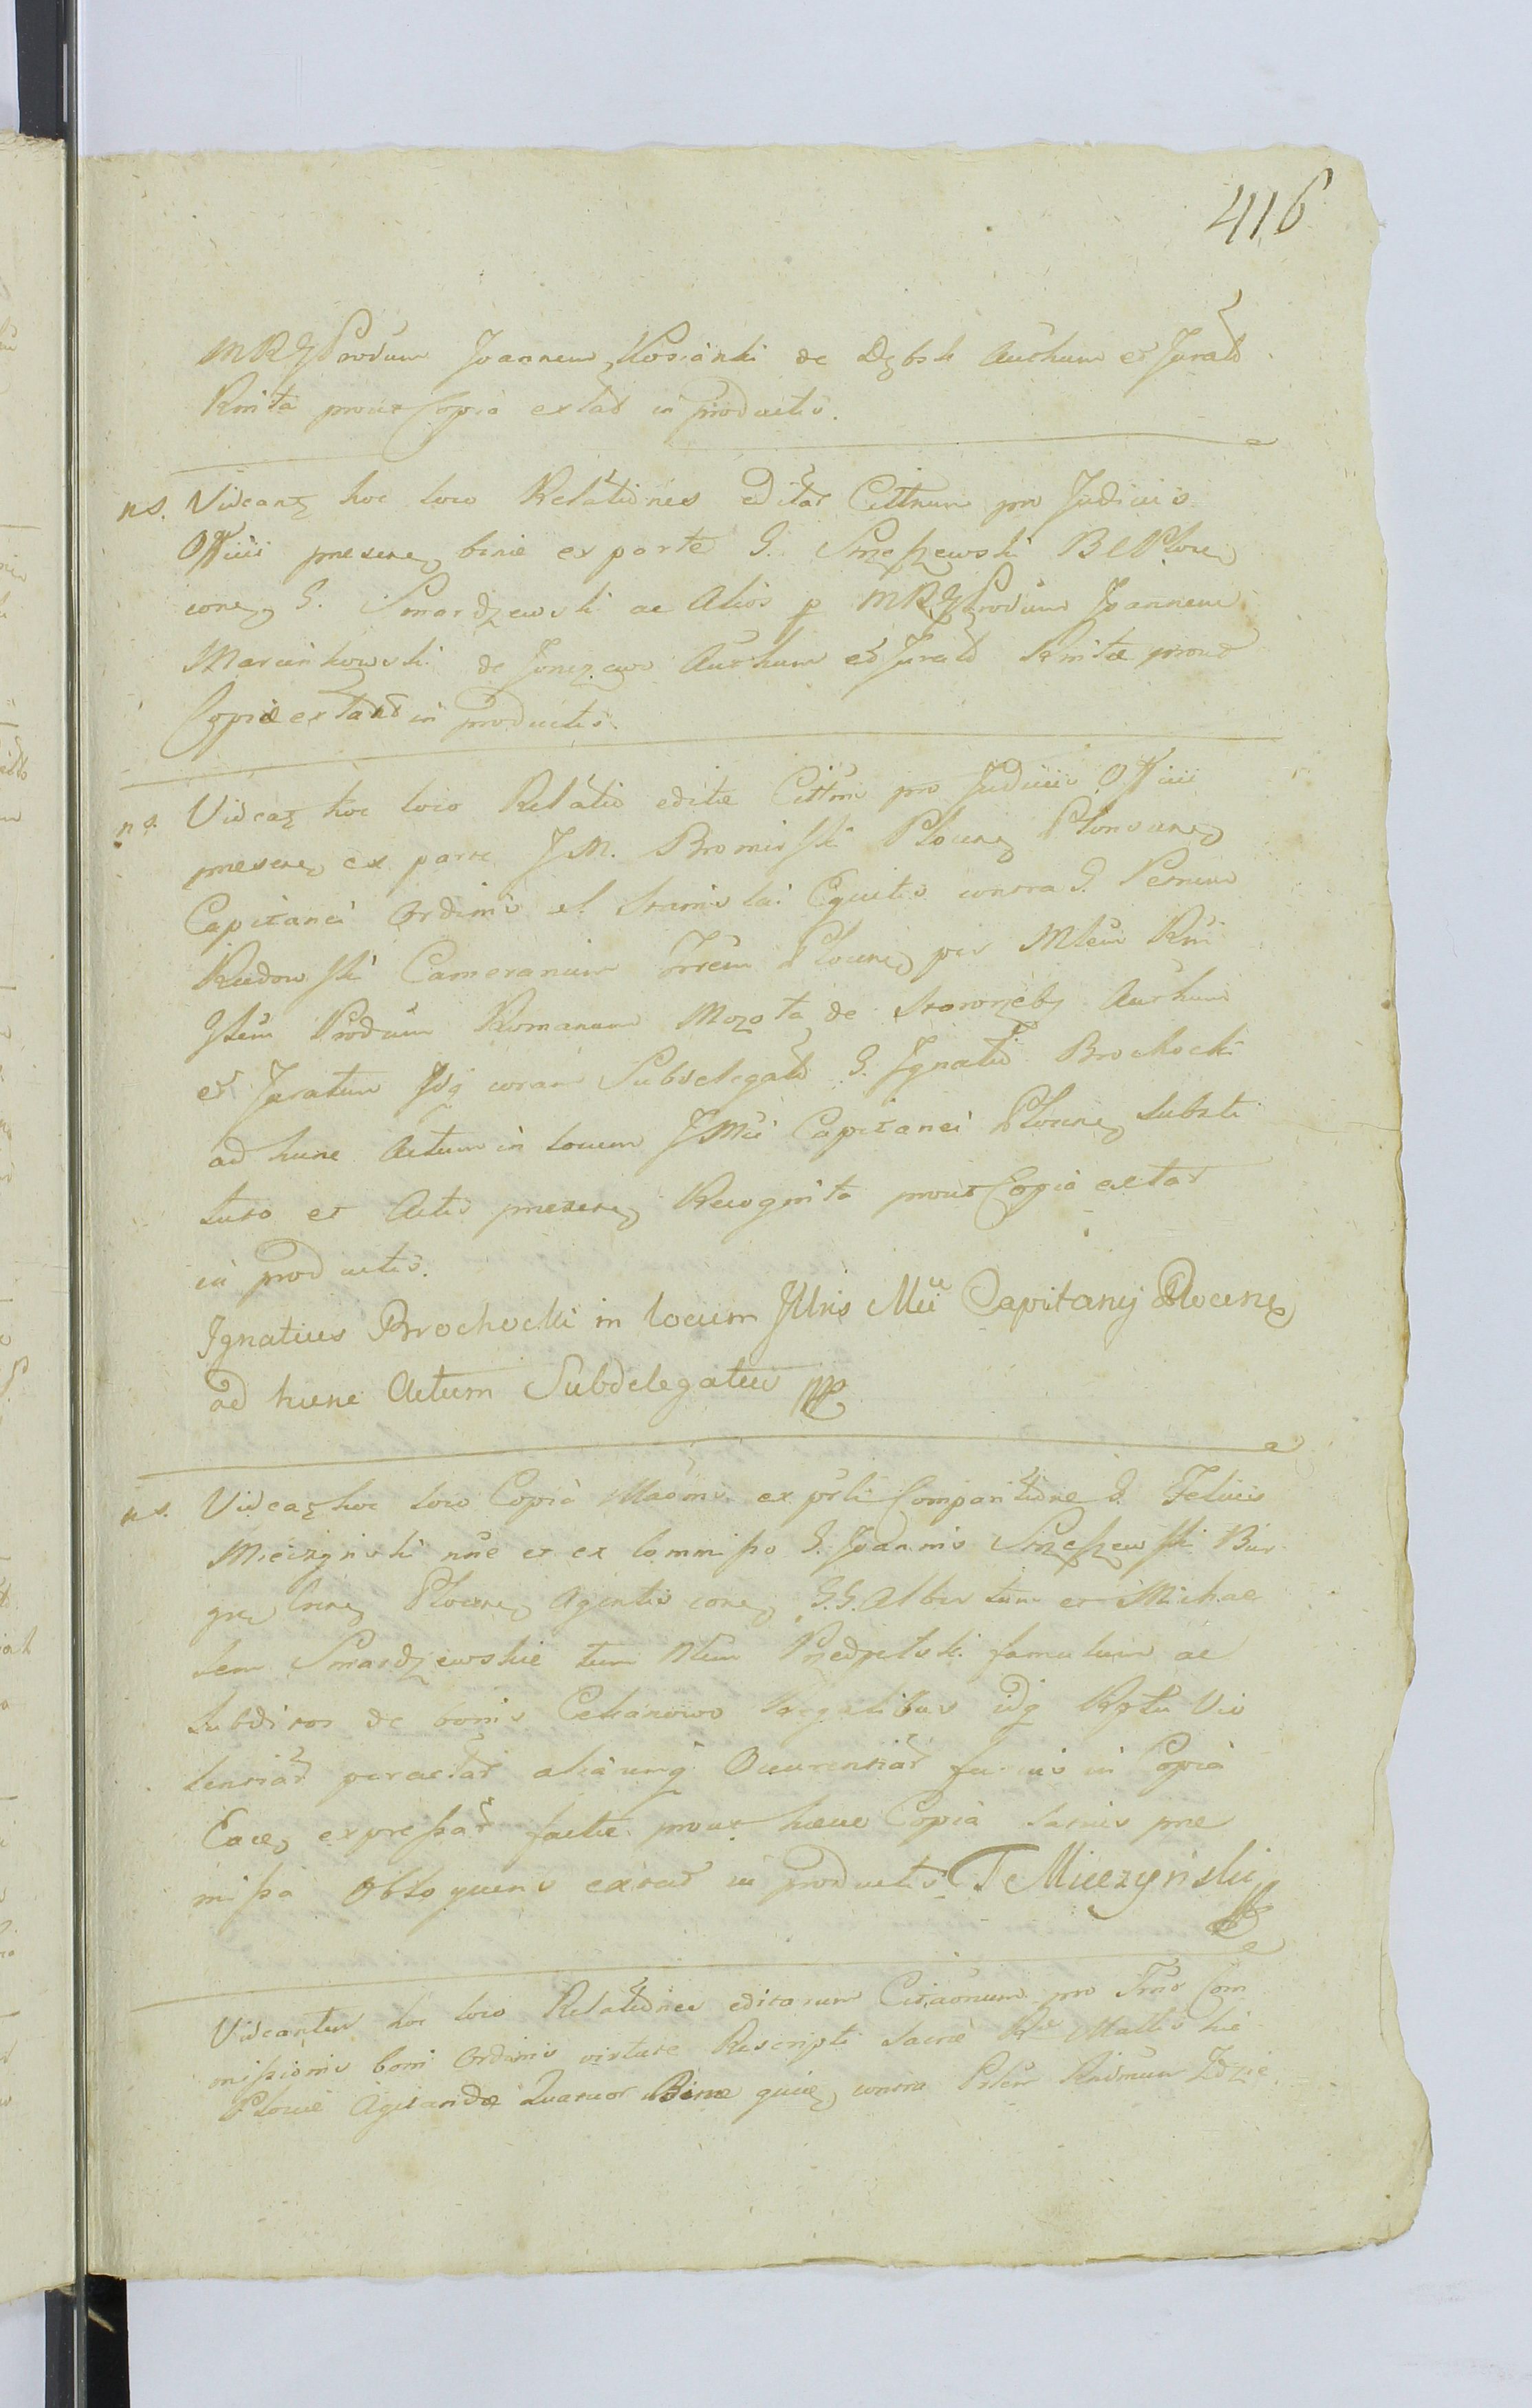 416
MRGProvum Joannem Kosinski de Dębsk Authum et Jurato
Rnita prout Copia extat in productis.
ns. Videantz hoc loco Relationes editar Cittnum pro Judiciis
Officii presene binæ ex parte G. Smeszewski B C Plocen
conę G. Smardzewski ac Alios p MRGProvum Joannem
Marcinkowski de Jonczewo Authum et Jurato Rnitæ prout
Copiæ extant in productis.
ns. Videaz hoc loco Relatio editæ Cittnis pro Judiciis Officii
presene ex parte J M. Bromirski Plocenę Plonscenę
Capitanei Ordinis st. Stanislai Equitis contra G. Petrum
Rudowski Camerarium Trrem Plocenę per Mlem Rni
Glem Produm Romanum Mozota de Starorzeby Authum
et Juratum Idq coram Subdelegato G. Ignatio Brochocki
ad hunc Actum in locum JMci Capitanei Plocenę substi
tuto et Actis presene Recognita prout Copia extat
in productis.
Ignatius Brochocki in locum Jllris Mci Capitanej Plocenę
ad hunc Actum Subdelegatus mp
ns. Videaz hoc loco Copia Manis ex prsli Comparitione G. Felicis
Mieczynski nne et ex commisso G. Joannis Smeszewski Bur
grę Crenę Plocenę Agentis conę G.G. Albertum et Michae
lem Smardzewskie tum Nlem Przedpelski famulum ac
subditos de bonis Cekanowo Regalibus idq Rptu Vio
lentiar peractar aliarumq Occurrentiar fusius in Copia
Eaceę expressar factæ prout hæce Copia satis præ
missa Obloquens extat in productis F Mieczynski
mp
Videantur hoc loco Relationes editarum Citaonum pro Trno Com
missionis boni Ordinis virtute Rescripti Sacræ Ræ Mattis hic
Plociæ Agitandæ Quatuor Binæ quię contra Prlen Rndmum Idzie